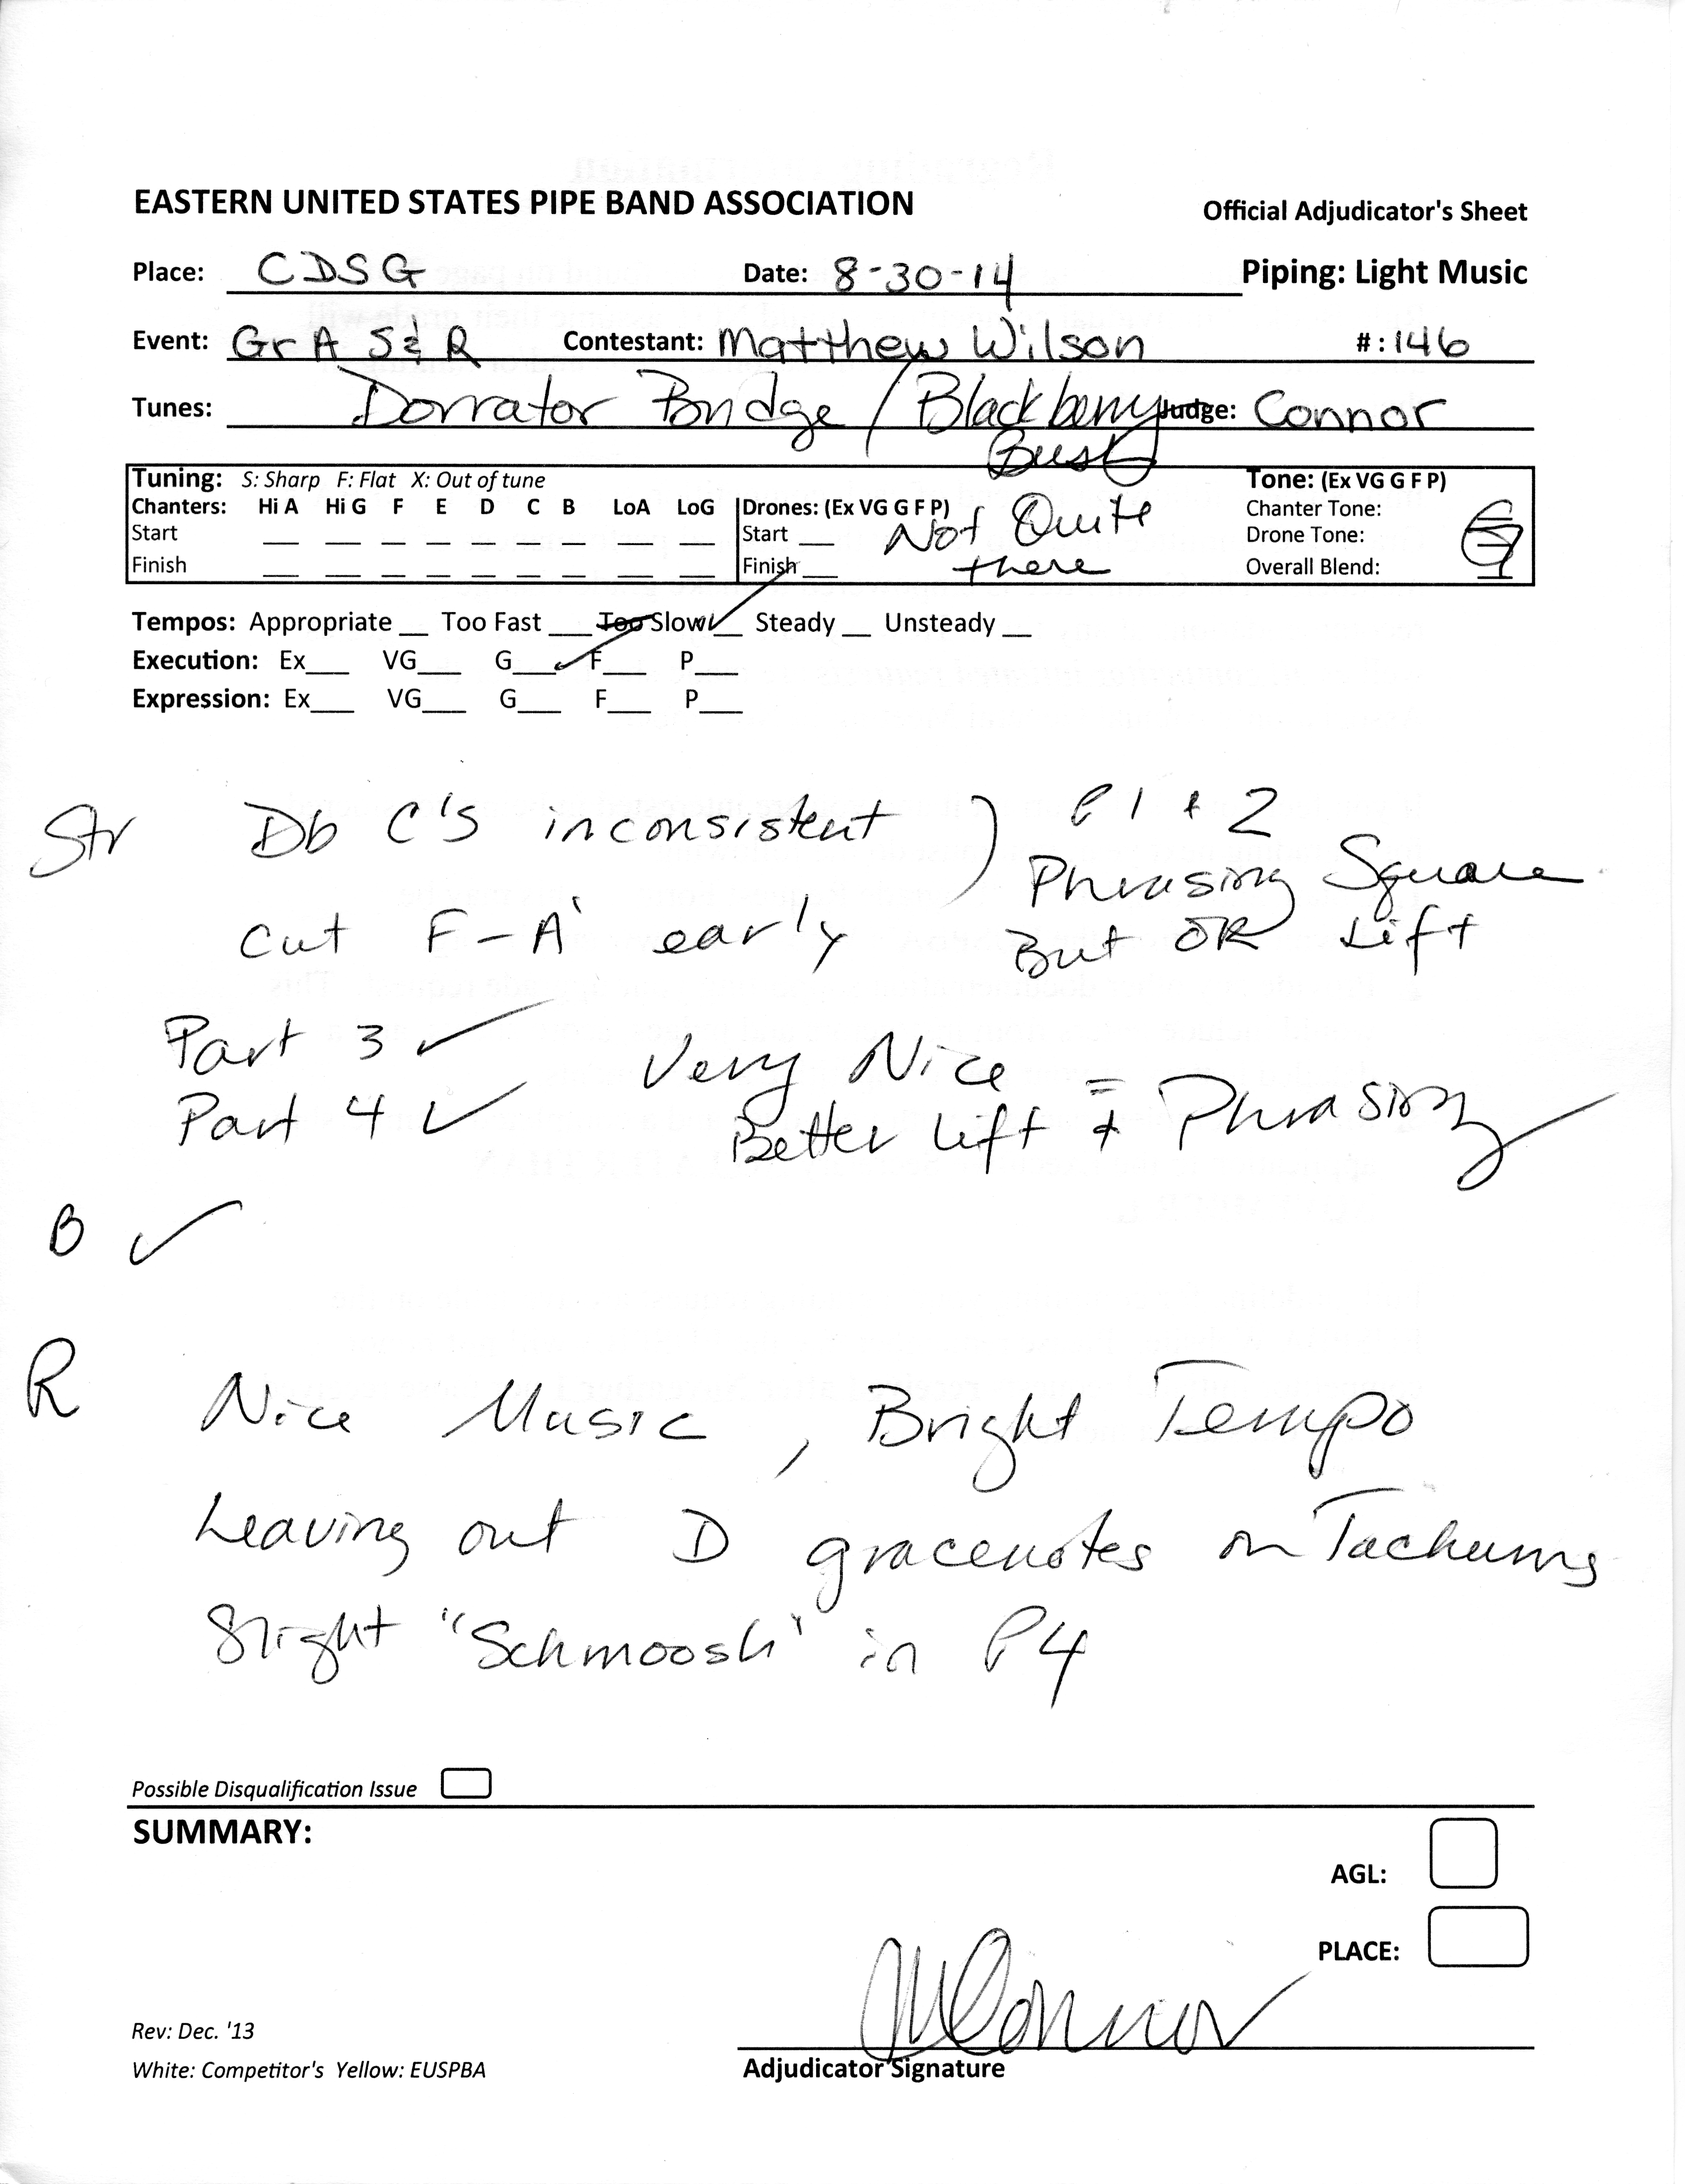 EASTERN UNITED STATES PIPE BAND ASSOCIATION Official Adjudicator's Sheet
Place: CDSG Date: 8-30-14 Piping: Light Music
Event: Gr A S & R Contestant: Matthew Wilson #: 146
Tunes: Dorrator Bridge / Blackberry Judge: Connor
Bush
Tuning: S: Sharp F: Flat X: Out of tune Tone: (Ex VG G F P)
Chanters: Hi A Hi G F E D C B LoA LoG Drones: (Ex VG G F P) Chanter Tone:
Start __ __ __ __ __ __ __ __ __ Start __ Not Quite Drone Tone: G
Finish __ __ __ __ __ __ __ __ __ Finish __ there Overall Blend:
Tempos: Appropriate __ Too Fast ___ Too Slow ✓ __ Steady __ Unsteady __
Execution: Ex___ VG___ G___ ✓ F___ P___
Expression: Ex___ VG___ G___ F___ P___
Str Db C's inconsistent ) P 1 + 2
Phrasing Square
cut F - A' early But OK Lift
Part 3 ✓ Very Nice
Part 4 ✓ Better Lift + Phrasing ✓
B ✓
R Nice Music, Bright Tempo
Leaving out D gracenotes on Tachums
Slight "Schmoosh" in P4
Possible Disqualification Issue
SUMMARY:
AGL:
PLACE:
Connor
Rev: Dec. '13
White: Competitor's Yellow: EUSPBA Adjudicator Signature